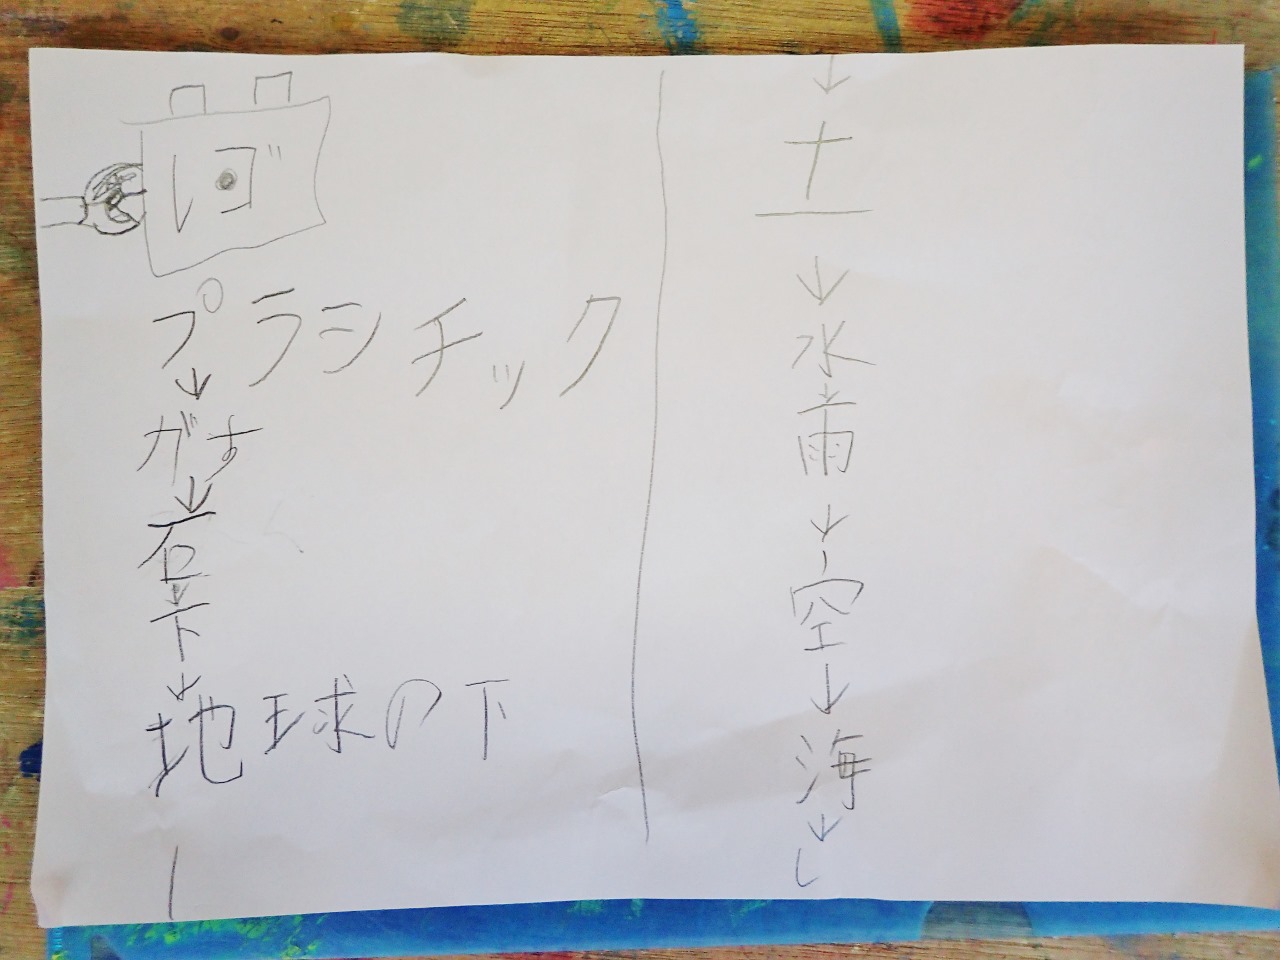 レゴ
プラシチック
↓
ガす
↓
石
↓
下
↓
地球の下
↓
土
↓
水
↓
雨
↓
空
↓
海
↓
し